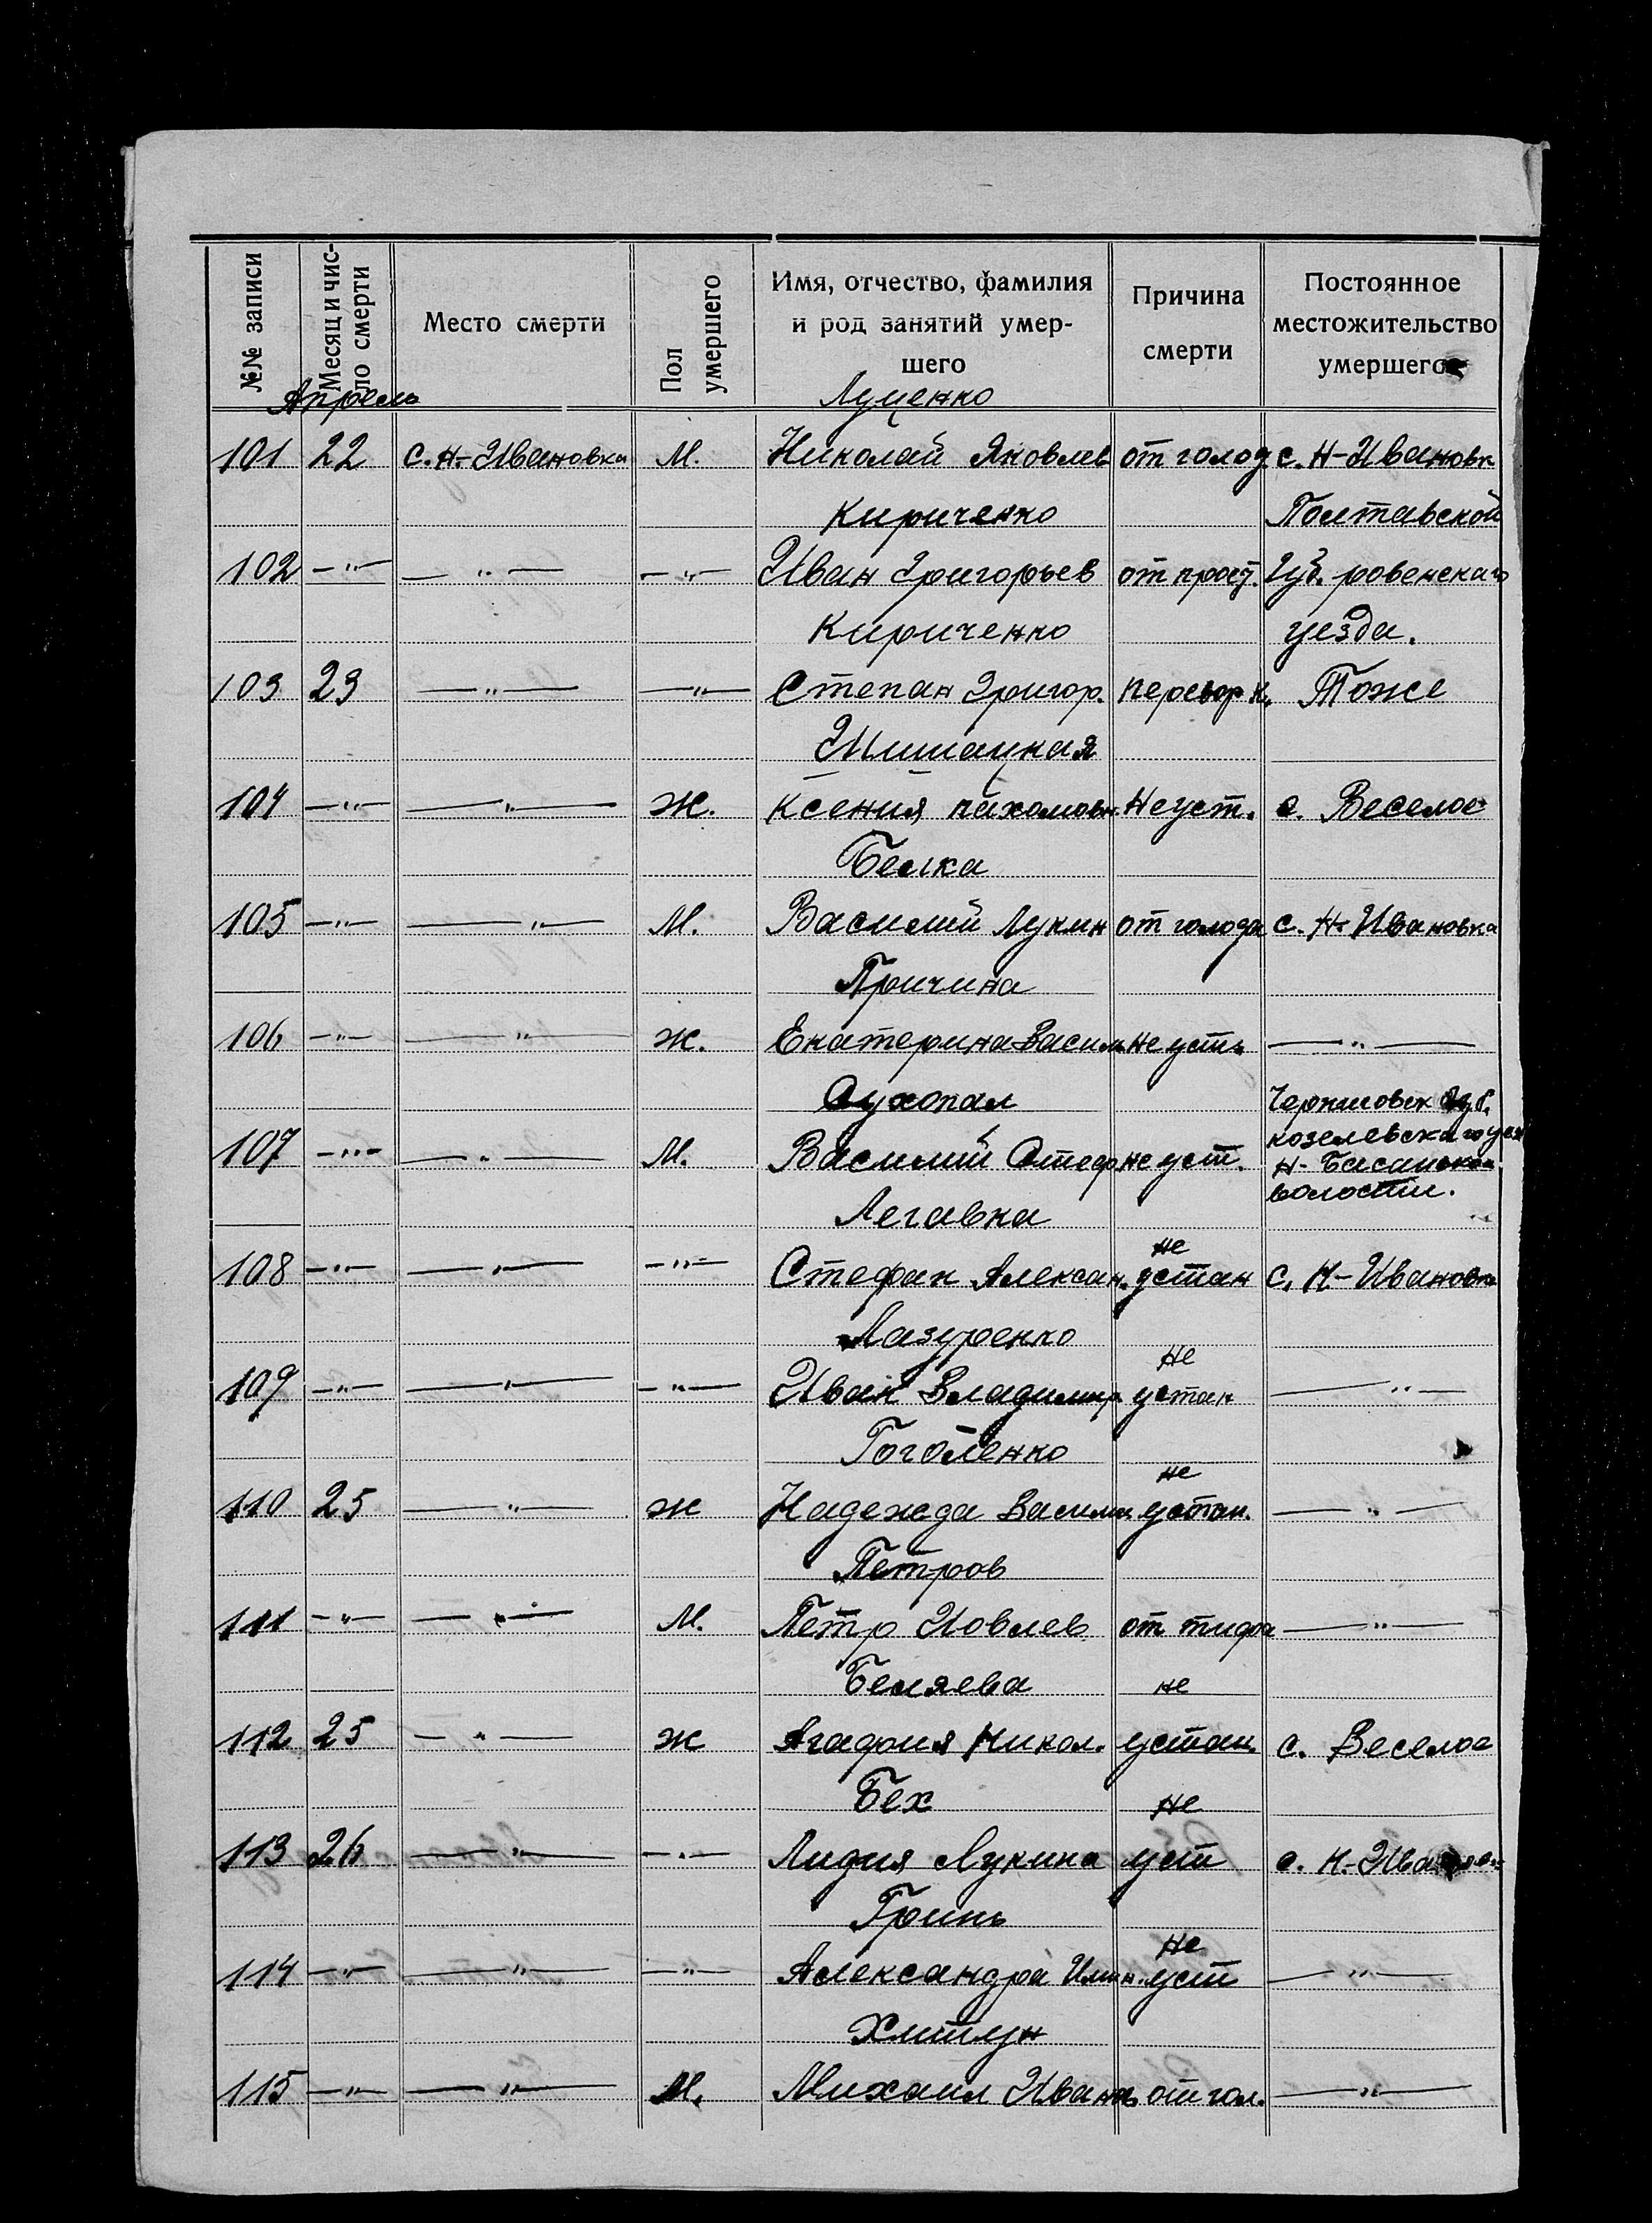 №№ записи
Месяц и чис-
ло смерти
Место смерти
Пол
умершего
Имя, отчество, фамилия
и род занятий умер-
шего
Причина
смерти
Постоянное
местожительство
умершего
Апрель Луценко
101 22 с. Н-Ивановка М. Николай Яковлев от голод. с. Н-Ивановк
Кириченко Полтавской
102 —"— —"— —"— Иван Григорьев от прост. Губ. ровенскаго
Кириченко уезда.
103 23 —"— —"— Степан Григор. Тоже
Шишацкая
104 —"— —"— Ж. Ксения пахомовн. Не уст. с. Веселое
Белка
105 —"— —"— М. Василий Лукин от голода с. Н-Ивановка
Причина
106 —"— —"— Ж. Екатерина Васил. не уст. —"—
Сухопал Черниговск Губ.
козелевскаго уез
107 —"— —"— М. Василий Стеф. не уст. Н-Басанской
волости.
Легавка
не
108 —"— —"— —"— Стефан Алексан. устан с. Н-Ивановка
Лазуренко
не
109 —"— —"— —"— Иван Владимир. устан —"—
Гоголенко
не
110 25 —"— Ж Надежда Васили устан. —"—
Петров
111 —"— —"— М. Петр Иовлев от тифа —"—
Беляева не
112 25 —"— Ж Агафия Никол. устан. с. Веселое
Бех не
113 26 —"— —"— Лидия Лукина уст с. Н-Ивановка
Гринь
не
114 —"— —"— —"— Александра Илин. уст —"—
Хитлун
115 —"— —"— М. Михаил Иванов от гол. —"—